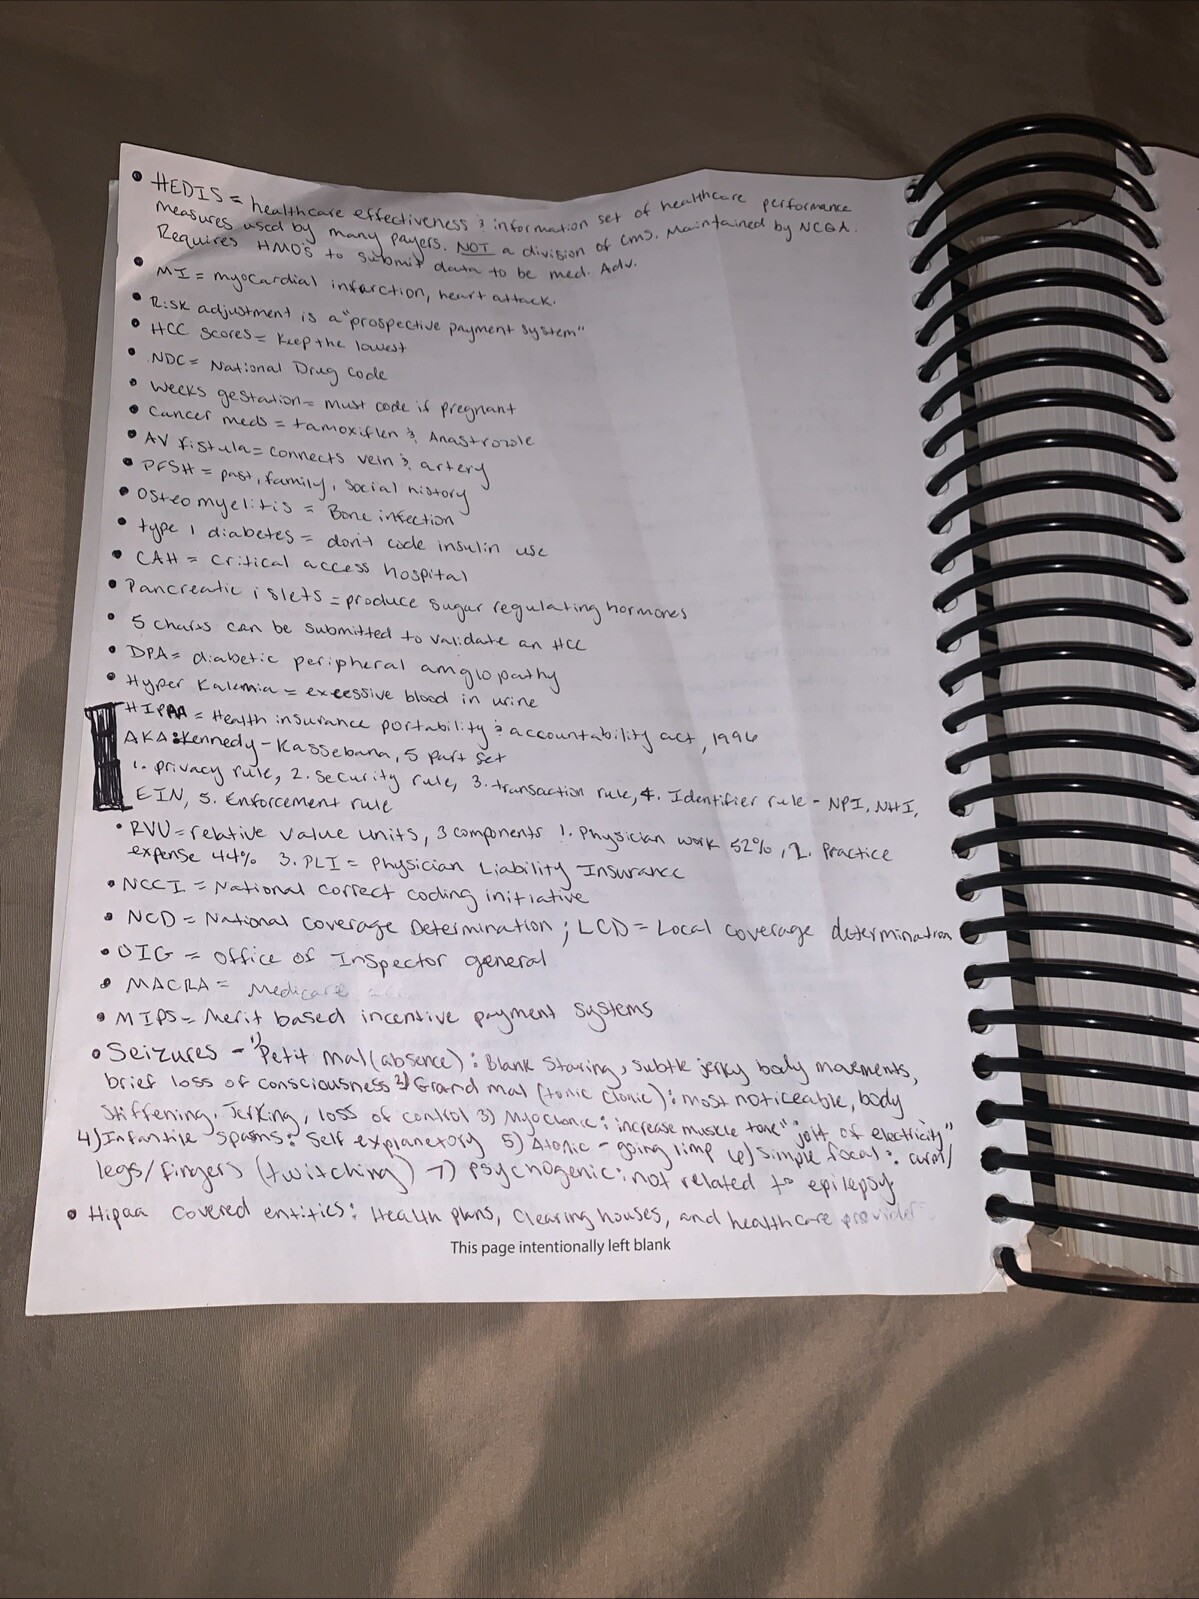 • HEDIS = healthcare effectiveness & information set of healthcare performance
measures used by many payers. NOT a division of cms. Maintained by NCQA.
Requires HMO's to submit data to be med. Adv.
• MI = myocardial infarction, heart attack.
• Risk adjustment is a "prospective payment system"
• HCC scores = Keep the lowest
• NDC = National Drug Code
• Weeks gestation = must code if pregnant
• Cancer meds = tamoxiflen & Anastrozole
• AV fistula = connects vein & artery
• PFSH = past, family, social history
• Osteomyelitis = Bone infection
• type 1 diabetes = don't code insulin use
• CAH = Critical access hospital
• Pancreatic islets = produce sugar regulating hormones
• 5 charts can be submitted to validate an HCC
• DPA = diabetic peripheral amgiopathy
• Hyper Kalemia = excessive blood in urine
HIPAA = Health insurance portability & accountability act, 1996
AKA: Kennedy-Kassebana, 5 part set
1. privacy rule, 2. Security rule, 3. transaction rule, 4. Identifier rule - NPI, NHI,
EIN, 5. Enforcement rule
• RVU = relative value units, 3 components 1. Physician work 52%, 2. Practice
expense 44% 3. PLI = Physician Liability Insurance
• NCCI = National correct coding initiative
• NCD = National Coverage Determination ; LCD = Local coverage determination
• OIG = Office of Inspector general
• MACRA = Medicare
• MIPS = Merit based incentive payment systems
• Seizures - 1) Petit mal (absence) : Blank Staring, subtle jerky body movements,
brief loss of consciousness 2) Grand mal (tonic clonic) : most noticeable, body
stiffening, Jerking, loss of control 3) Myoclonic : increase muscle tone "jolt of electricity"
4) Infantile spasms : Self explanetory 5) Atonic - going limp 6) simple focal : arm/
legs/fingers (twitching) 7) psychogenic : not related to epilepsy
• Hipaa Covered entities : Health plans, Clearing houses, and healthcare providers
This page intentionally left blank